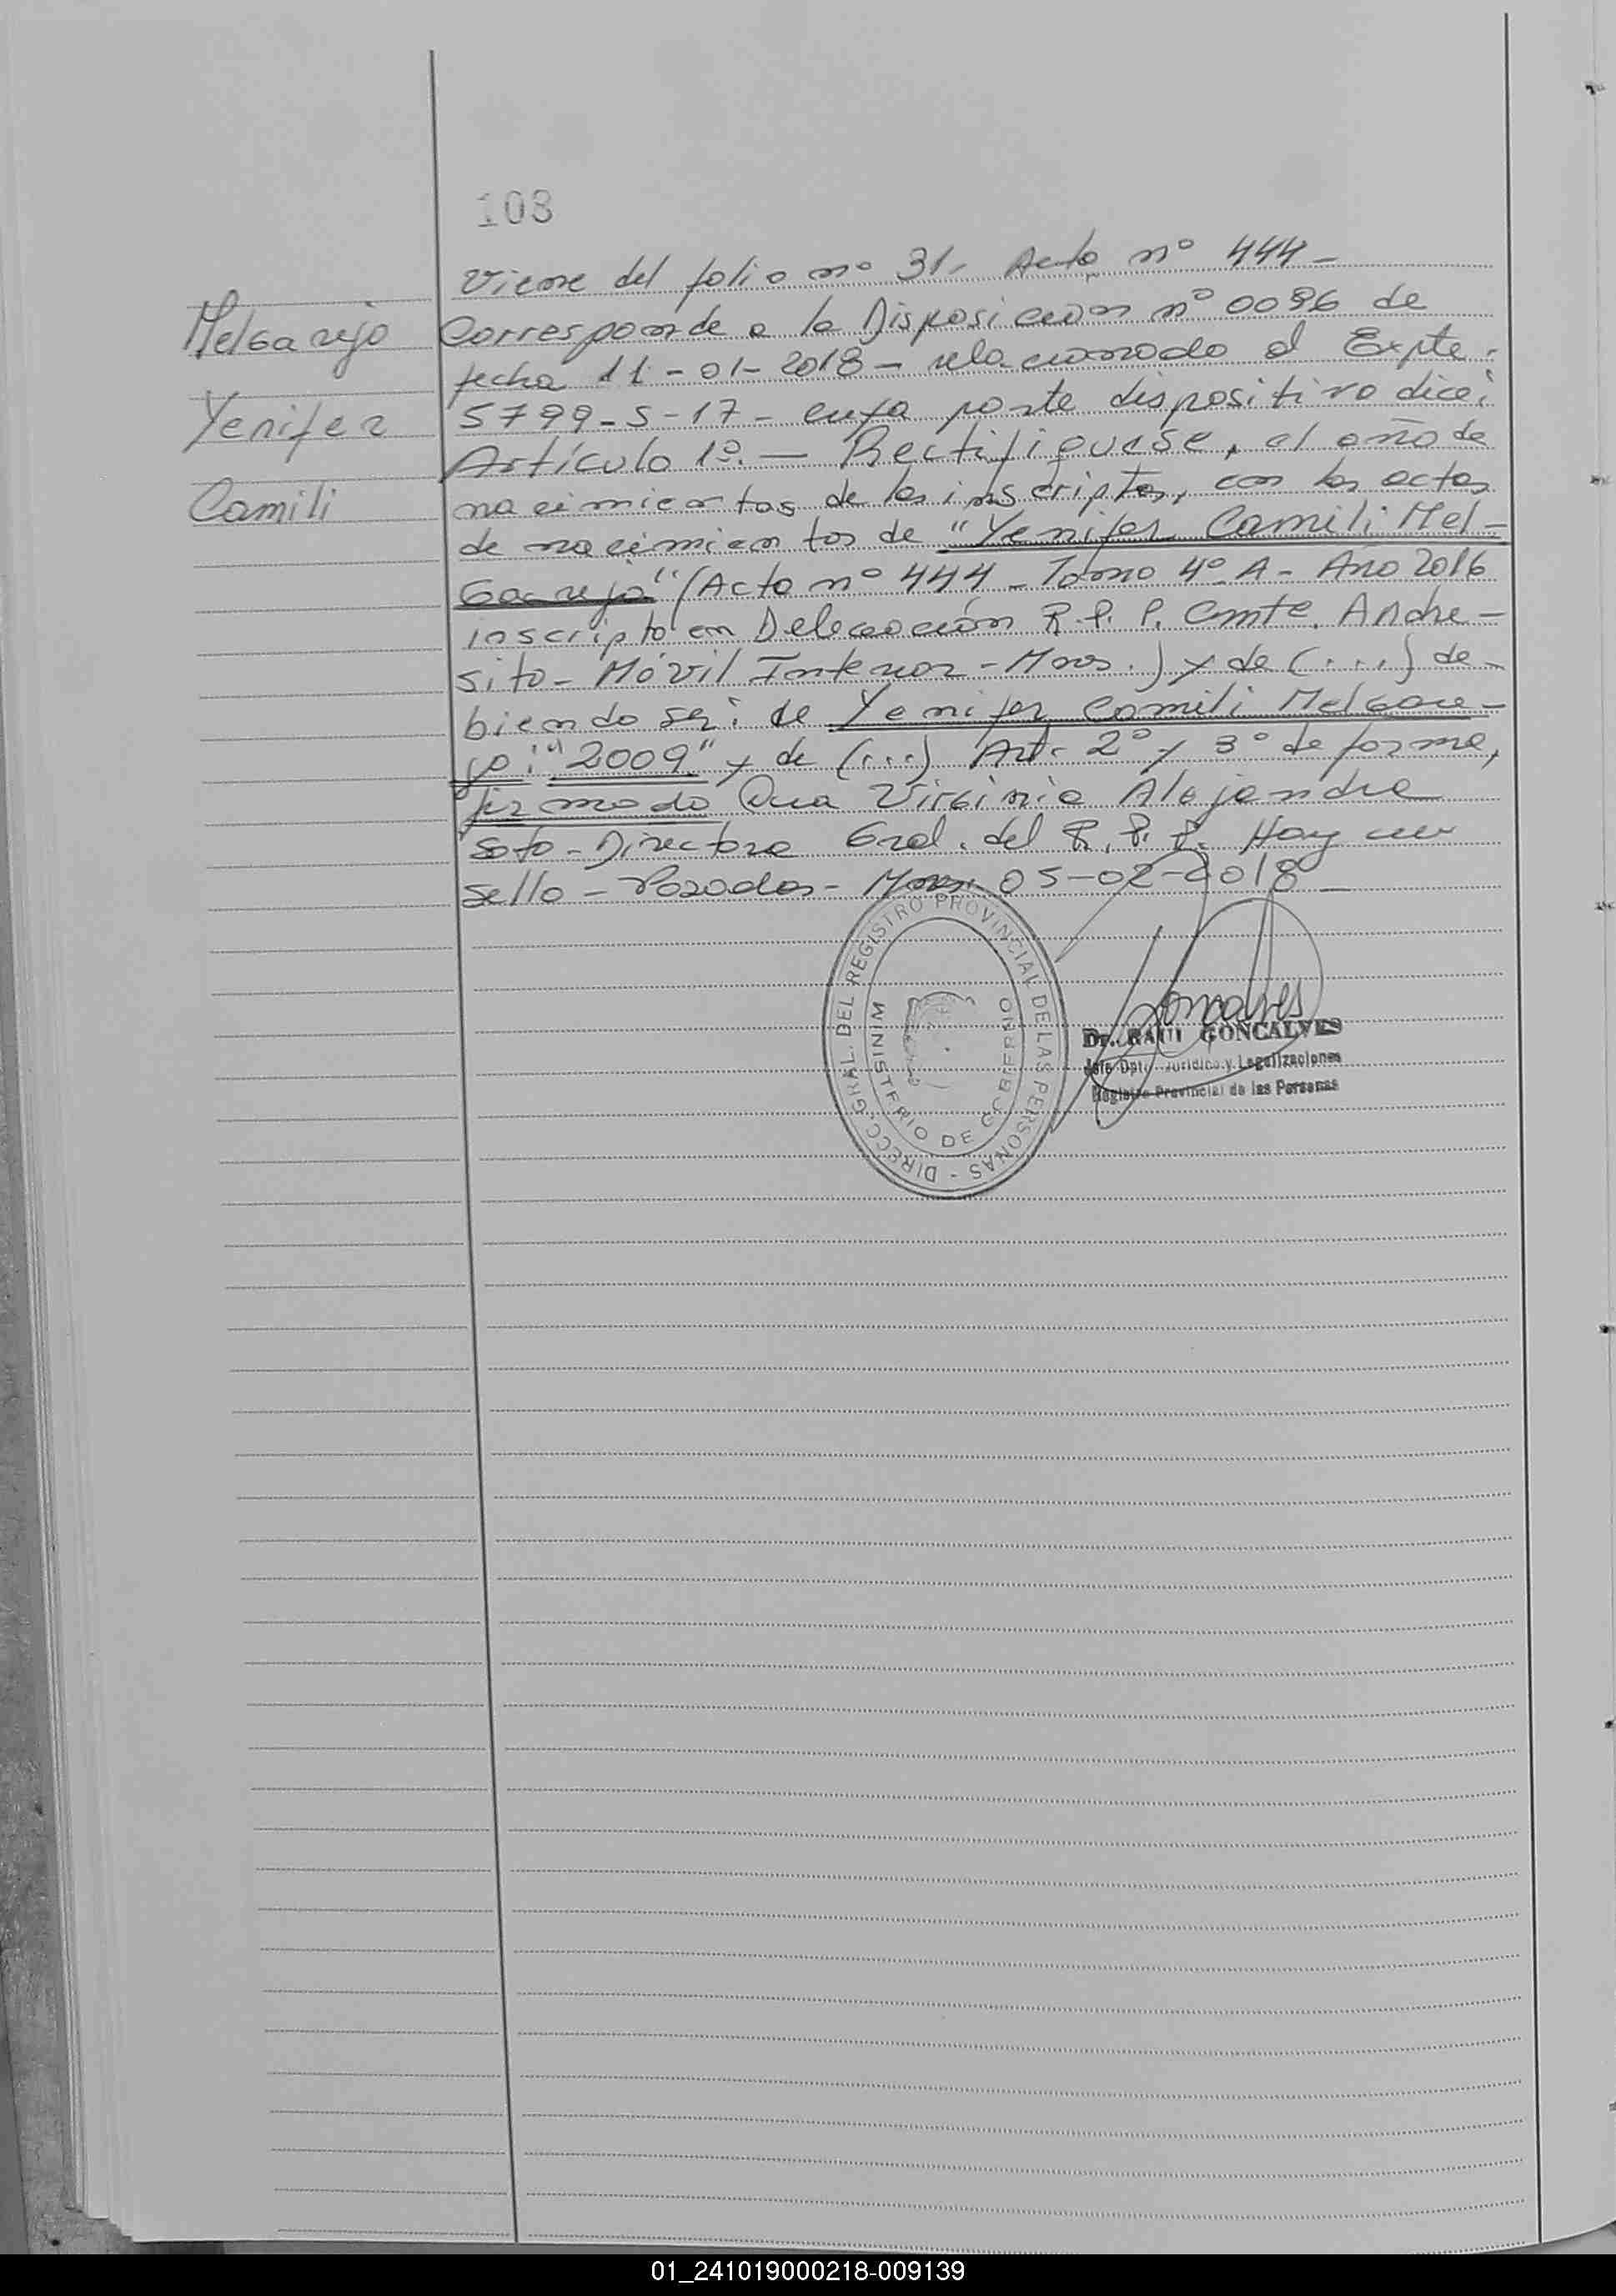 103
Viene del folio nº 31. Acta nº 444 -
Melgarejo
Yenifer
Camili
Corresponde a la Disposición nº 0096 de
fecha 11-01-2018 - relacionado al Expte.
5799-S-17 - cuya parte dispositiva dice:
Artículo 1º. — Rectifiquese, el año de
nacimientos de los inscriptos, con las actas
de nacimientos de "Yenifer Camili Mel-
garejo" (Acta nº 444 - Tomo 4º A - Año 2016
inscripto en Delegación R.P.P. Cmte. Andre-
sito - Móvil Interior - Mnes.) y de (...) de-
biendo ser: de Yenifer Camili Melgare-
jo: "2009" y de (...) Art. 2º y 3º de forma,
firmado Dra Virginia Alejandra
Soto - Directora Gral. del R.P.P. Hay un
sello - Posadas - Mnes. 05-02-2018 -
DIRECC. GRAL. DEL REGISTRO PROVINCIAL DE LAS PERSONAS -
MINISTERIO DE GOBIERNO
Goncalves
Dr. RAUL GONCALVES
Jefe Dpto. Jurídico y Legalizaciones
Registro Provincial de las Personas
01_241019000218-009139